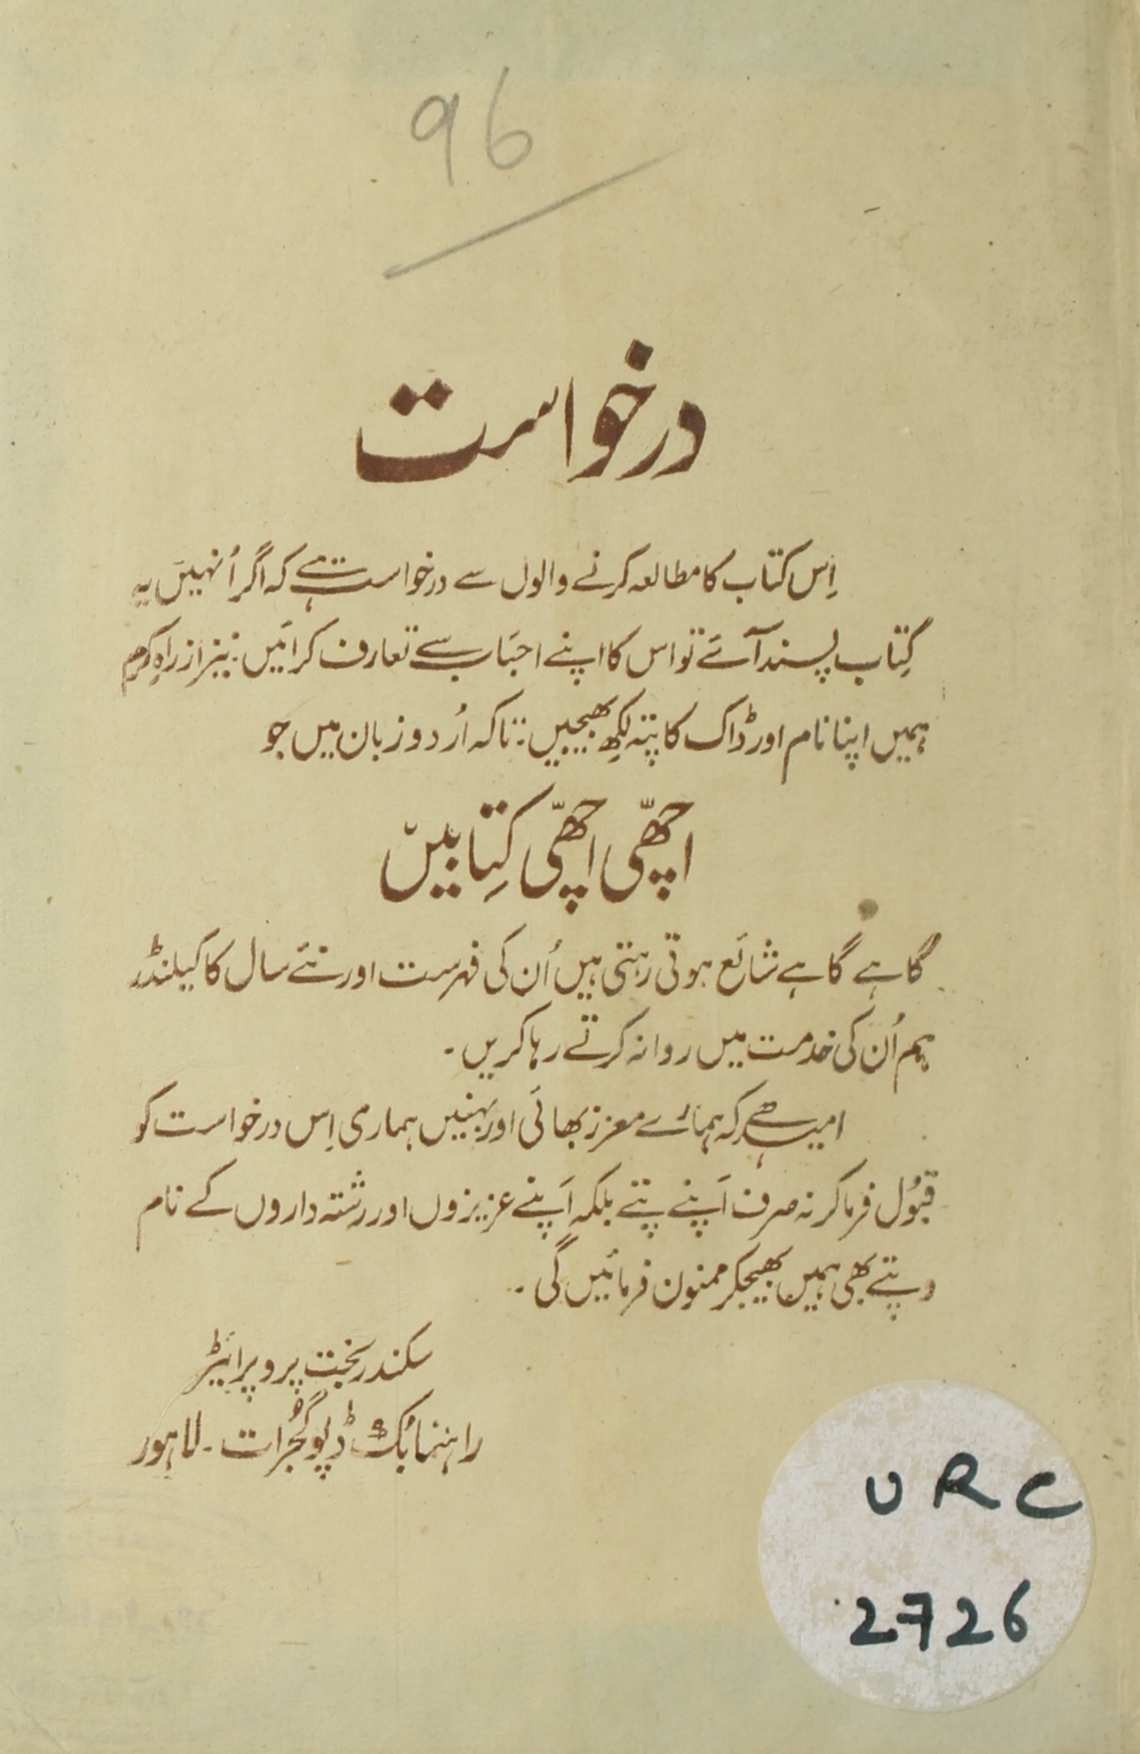 96
درخواست
اِس کتاب کا مطالعہ کرنے والوں سے درخواست ہے کہ اگر اُنہیں یہ
کِتاب پسند آئے تو اس کا اپنے احباب سے تعارف کرائیں۔ نیز از راہِ کرم
ہمیں اپنا نام اور ڈاک کا پتہ لکھ بھیجیں۔ تاکہ اُردو زبان میں جو
اچھّی اچھّی کِتابیں
گاہے گاہے شائع ہوتی رہتی ہیں اُن کی فہرست اور نئے سال کا کیلنڈر
ہم اُن کی خدمت میں روانہ کرتے رہا کریں۔
امید ہے کہ ہمارے معزز بھائی اور بہنیں ہماری اِس درخواست کو
قبُول فرما کر نہ صرف اَپنے پتے بلکہ اَپنے عزیزوں اور رشتہ داروں کے نام
و پتے بھی ہمیں بھیجکر ممنون فرمائیں گی۔
سکندر بخت پروپرائیٹر
راہنما بُک ڈپو گجرات۔ لاہور
URC
2726